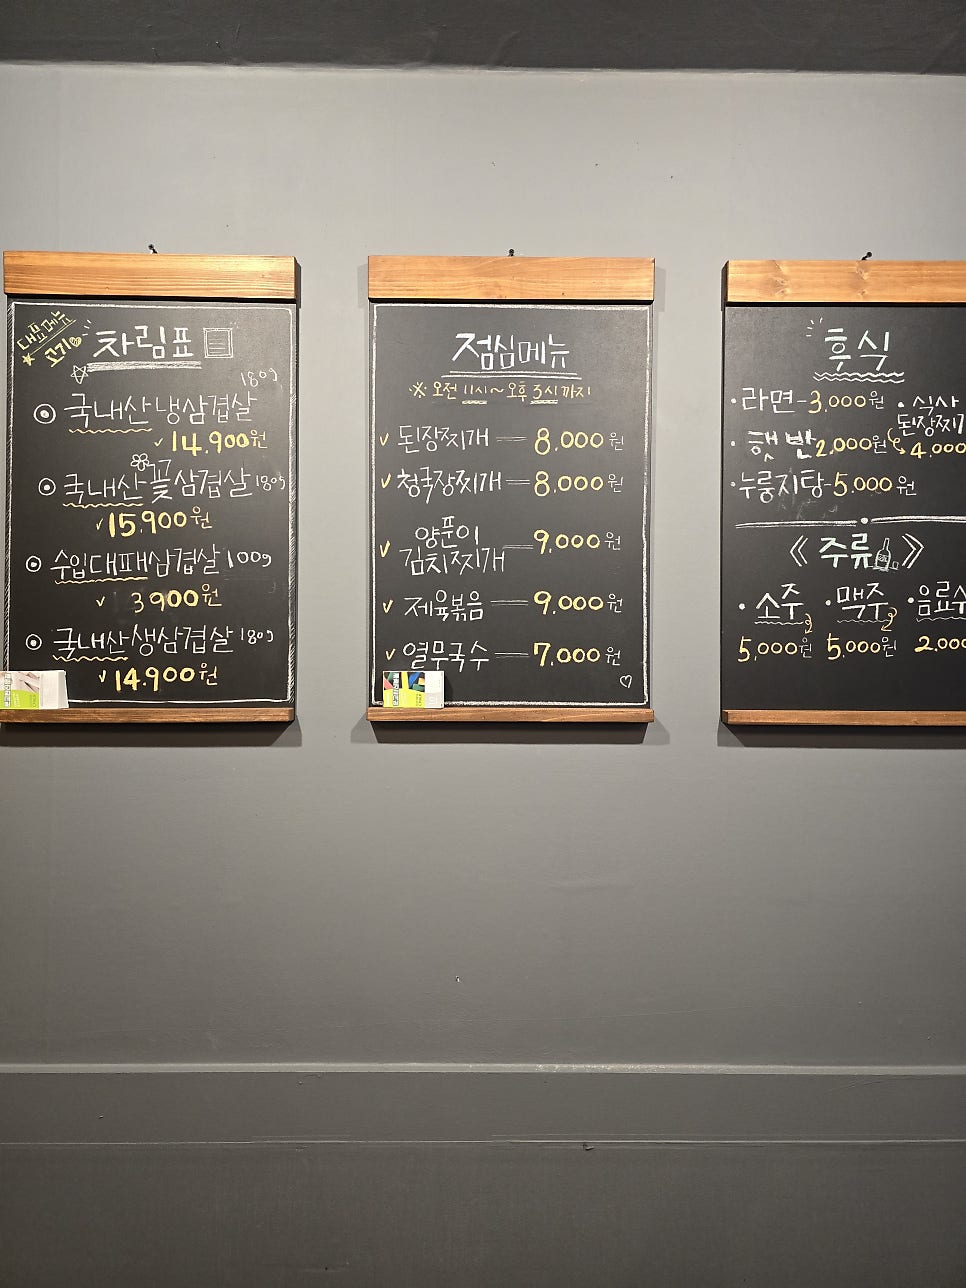 대표메뉴
고기
차림표
180g
국내산 냉삼겹살
14.900원
국내산 꽃삼겹살 180g
15.900원
수입대패삼겹살 100g
3900원
국내산생삼겹살 180g
14.900원
점심메뉴
※ 오전 11시~오후 3시까지
된장찌개 8,000원
청국장찌개 8,000원
양푼이
김치찌개 9,000원
제육볶음 9,000원
열무국수 7,000원
후식
·라면-3,000원 ·식사
된장찌개
·햇반 2,000원 4,000
·누룽지탕-5,000원
《주류》
·소주 ·맥주 ·음료수
5,000원 5,000원 2,000